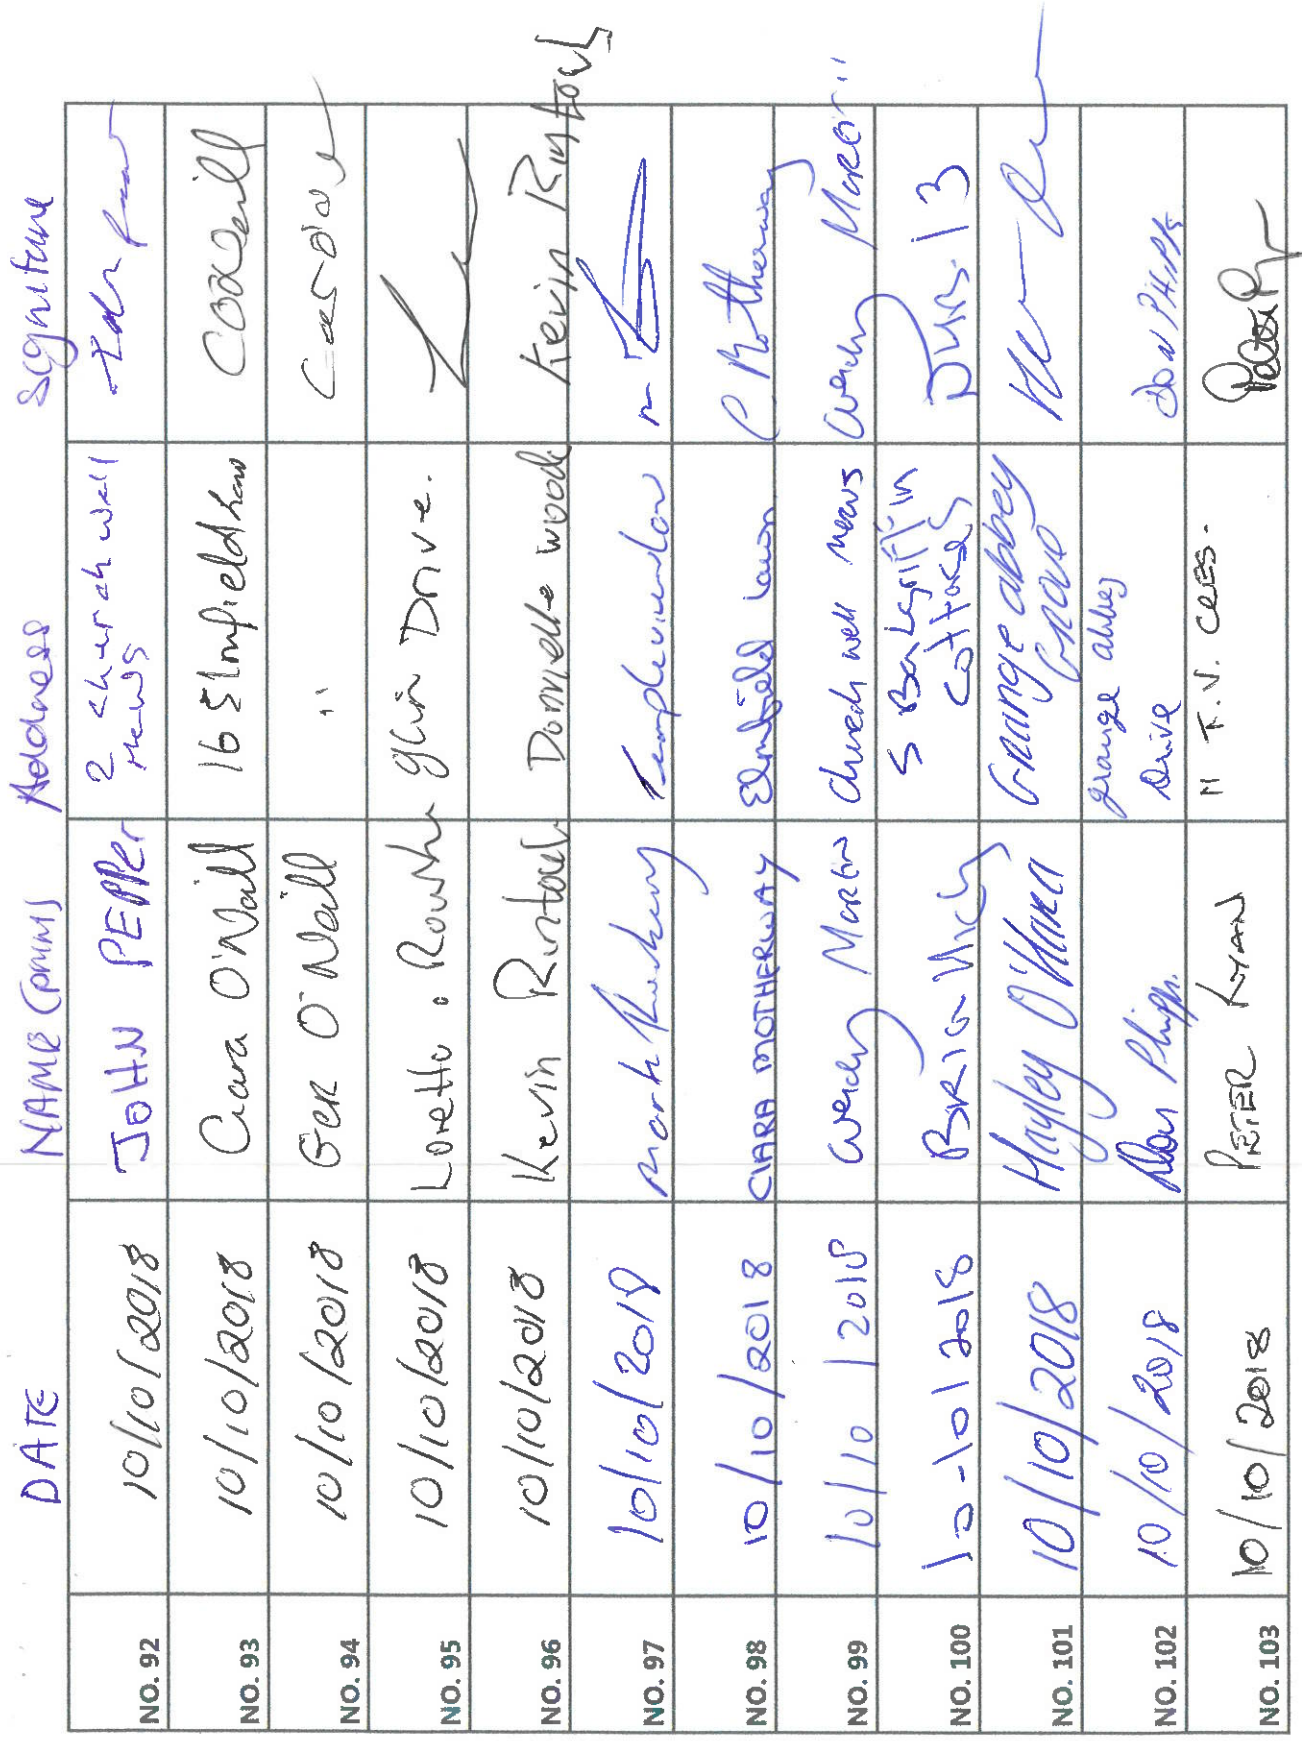 DATE NAME (PRINT) Address Signiture
NO. 92 10/10/2018 JOHN PEPPer 2 church well
mews
NO. 93 10/10/2018 Ciara O'Neill 16 Elmfield Lawn COONeill
NO. 94 10/10/2018 Ger O'Neill "
NO. 95 10/10/2018 Loretto Glin Drive.
NO. 96 10/10/2018 Kevin Rintoul Donnelle wood Kevin Rintoul
NO. 97 10/10/2018 Mark Templeview Lawn
NO. 98 10/10/2018 CIARA MOTHERWAY Elmfield Lawn C Motherway
NO. 99 10/10/2018 Wendy Martin Church well mews Wendy Martin
NO. 100 10-10/2018 Brian 5 Balgriffin
Cottages
NO. 101 10/10/2018 Hayley O'Hara Grange abbey
Grove
NO. 102 10/10/2018 Don Phipps. grange abbey
Drive Don Phipps
NO. 103 10/10/2018 PETER RYAN 11 T.V. CRES.